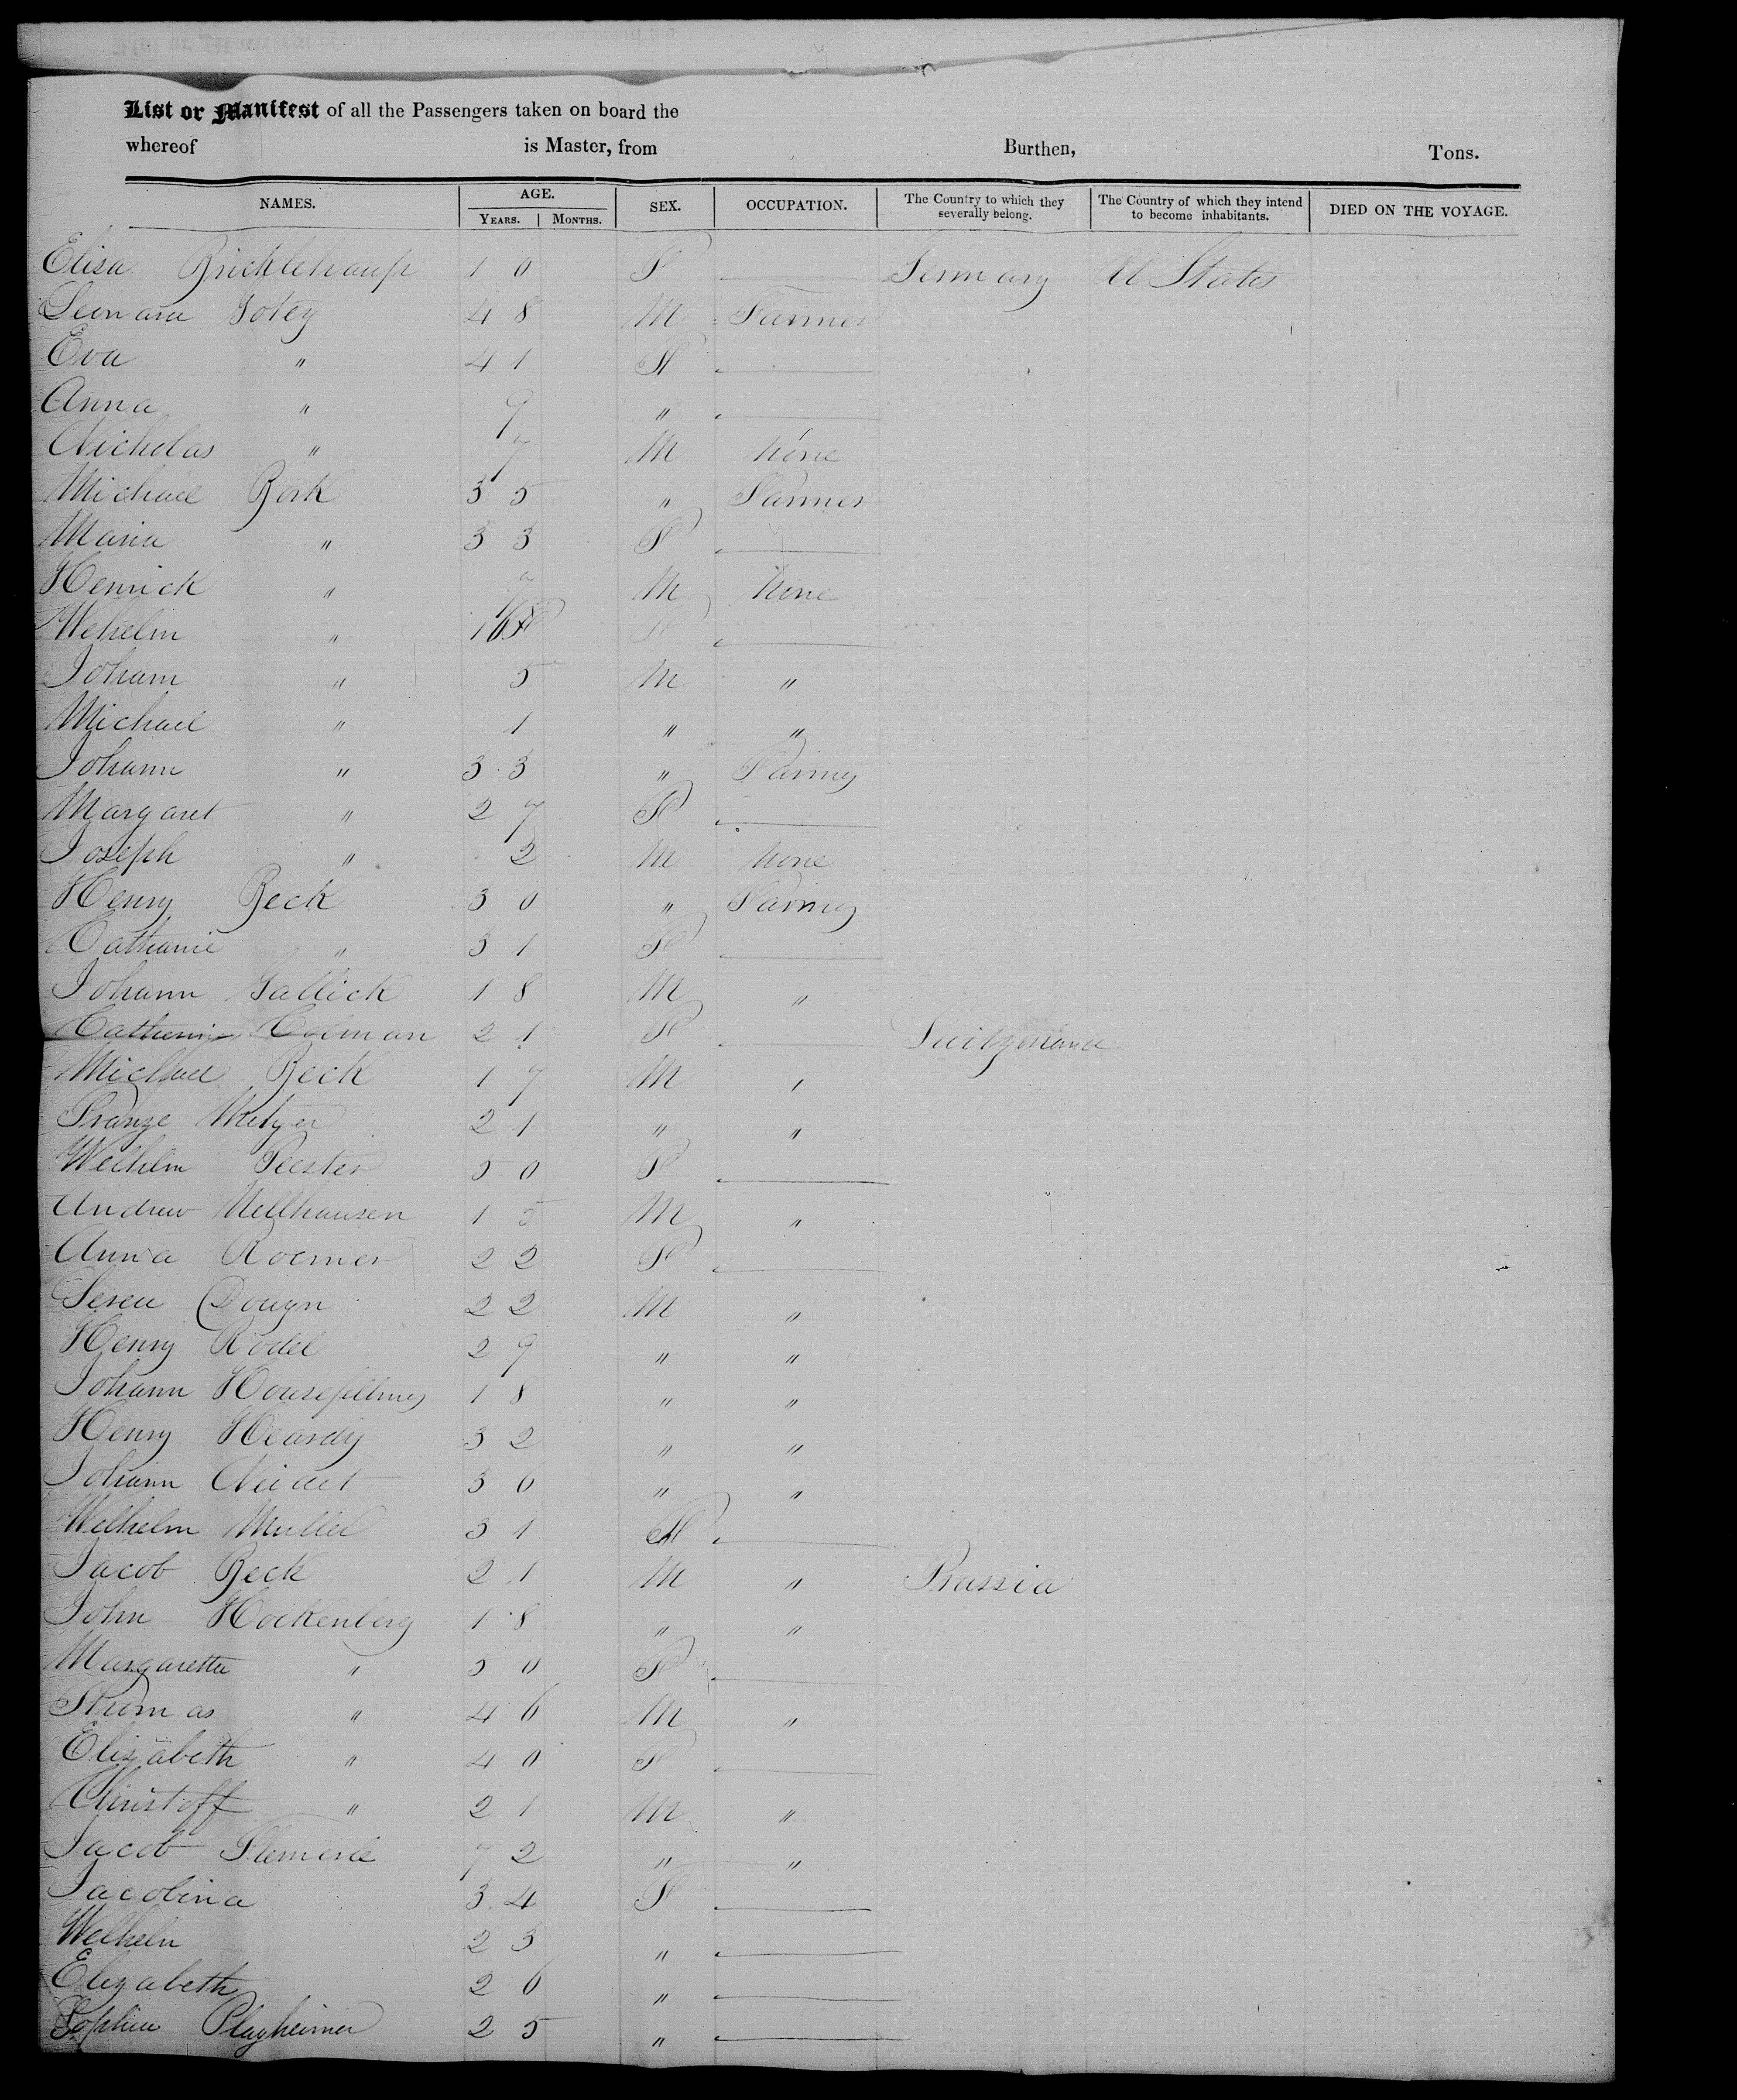 List or Manifest of all the Passengers taken on board the
whereof is Master, from Burthen, Tons.
NAMES. AGE. YEARS. MONTHS. SEX. OCCUPATION. The Country to which they severally belong. The Country of which they intend to become inhabitants. DIED ON THE VOYAGE.
Elisa 10 F — Germany U States
Gotey 48 M Farmer
Eva " 41 F —
Anna " 9 " —
Nicholas " 7 M None
Michael Bork 35 " Farmer
Maria " 33 F —
Henrick " 7 M None
Wehelm " F —
Joham " 5 M "
Michael " 1 " "
Johann " 33 " Farmer
Margaret " 27 F —
Joseph " 2 M None
Henry Beck 30 " Farmer
" 31 F —
Johann Gallick 18 M "
Colman 21 F — Switzerland
Michael Beck 17 M "
Franze Metzer 21 " "
Welhelm 50 F —
Andrew Mellhausen 15 M "
Anna Roemer 22 F —
22 M "
Henry Rodel 29 " "
Johann 18 " "
Henry Heardy 32 " "
Johann 36 " "
Welhelm Muller 31 F —
Jacob Beck 21 M " Prussia
John Hockenberg 18 " "
Margaretta " 50 F —
" 46 M "
Elizabeth " 40 F —
Christoff " 21 M "
Jacob 72 " "
Jacobina 34 F —
Welhelm 23 " —
Elizabeth 26 " —
Sophia Plagheimer 25 " —